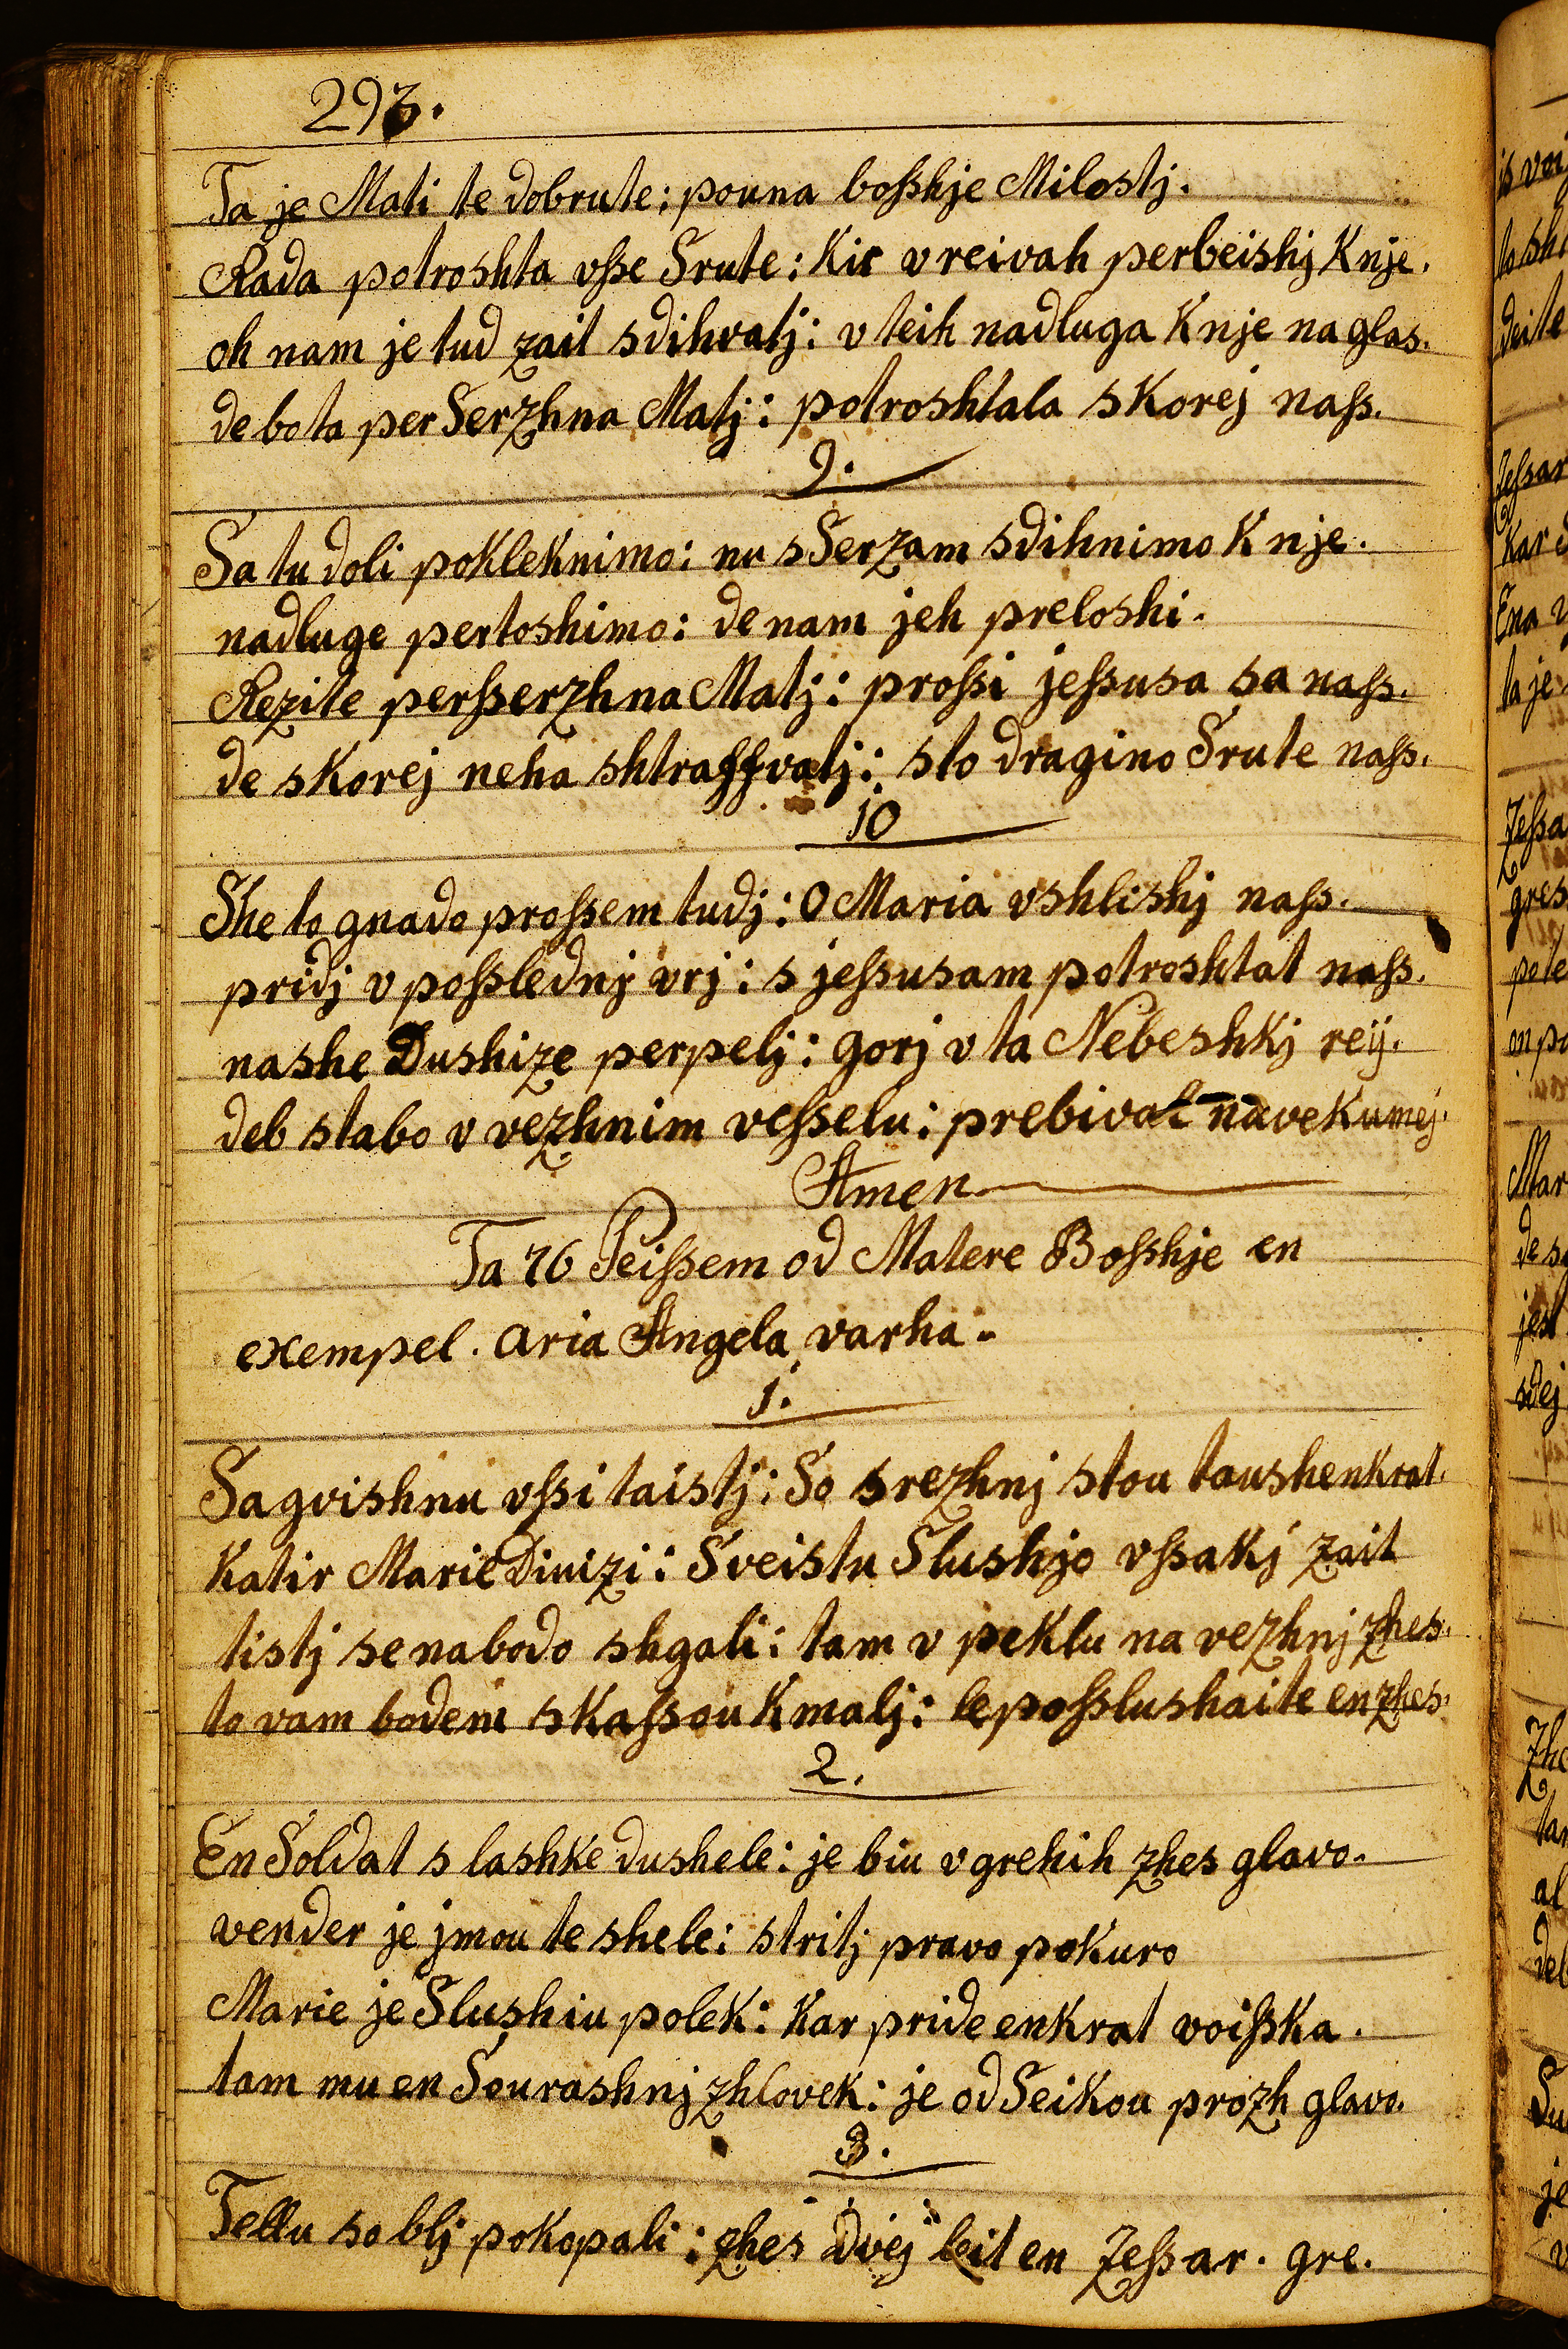 293.
Ta je Mati te dobrute: pouna bosshje Milostj.
Rada potroshta vsse Srute: Kir v reivah perbeishj K nje.
oh nam je tud zait sdihvatj: v teih nadluga K nje na glas.
de bo ta per Serzhna Matj: potroshtala skorej nass.
9.
Sa tu doli pokleknimo: nu s Serzam sdihnimo K nje.
nadluge pertoshimo: de nam jeh preloshi.
Rezite persserzhna Matj: prossi jessusa sa nass.
de skorej neha shtraffvatj: sto dragino Srute nass.
10
She to gnado prossem tudj: O Maria vshlishj nass.
pridj v posslednj vrj: s jessusam potroshtat nass.
nashe Dushize perpelj: gorj v ta Nebeshkj reij.
deb stabo v vezhnim vesselu: prebivat na vekumej.
Amen
Ta 76 Peissem od Matere Bosshje en
exempel. aria Angela varha.
1.
Sa gvishnu vssi taistj: So srezhnj stou taushenkrat.
Katir Marie Divizi: Sveistu Slushjo vssakj zait
tistj se na bodo shgali: tam v peklu na vezhnj zhes.
to vam bodem skassou K malj: le posslushaite en zhes.
2.
En Soldat s lashke dushele: je biu v grehih zhes glavo.
vender je jmou te shele: stritj pravo pokuro
Marie je Slushiu polek: Kar pride enkrat voisska.
tam mu en Sourashnj zhlovek: je od Seikou prozh glavo.
3.
Tellu so blj pokopali: zhes dvej leit en Zessar. gre.